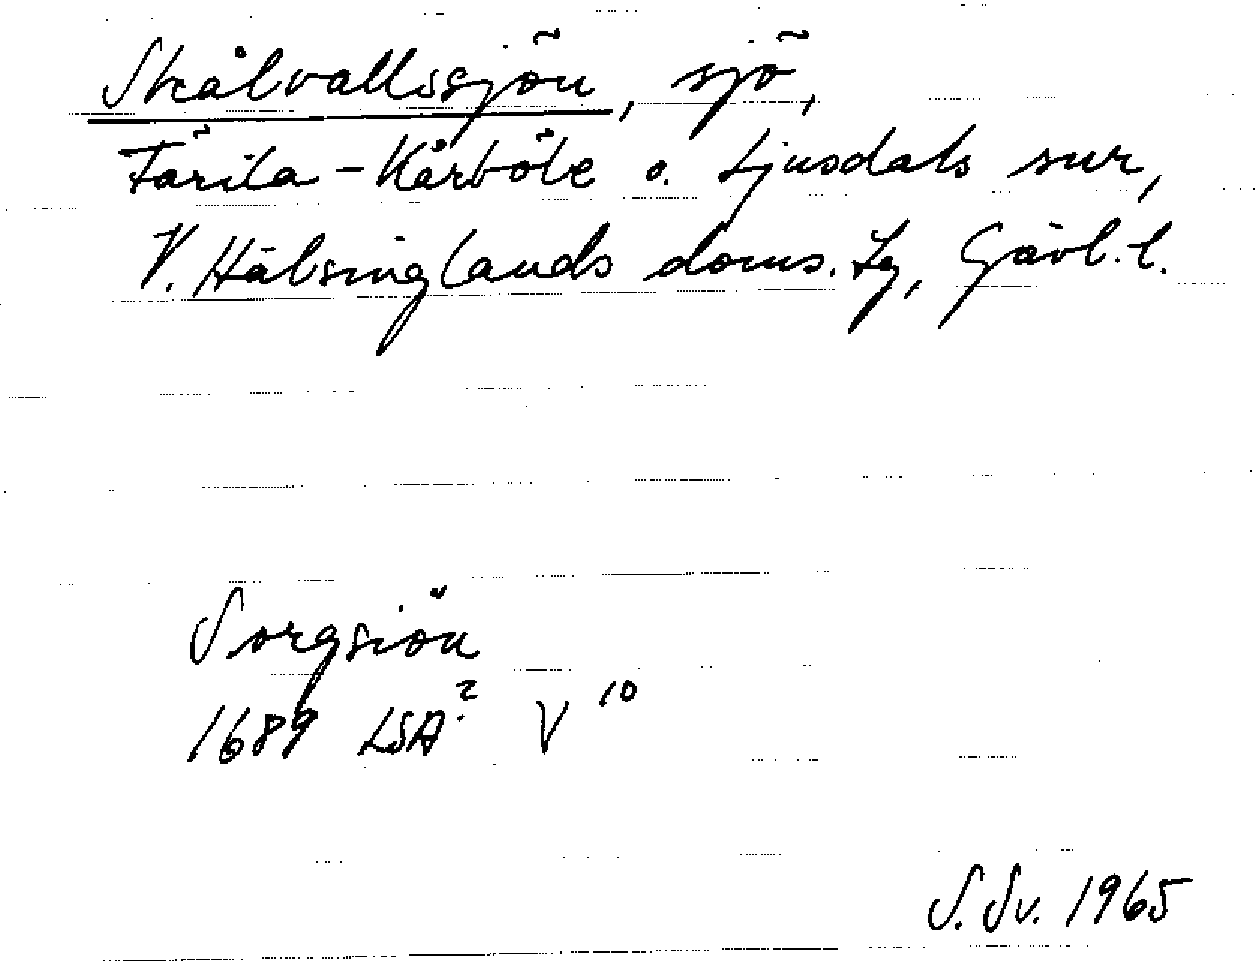 Skålvallssjön, sjö,
Färila-Kårböle o. Ljusdals snr,
V. Hälsinglands doms. tg, Gävl. l.
Sorgsiön
1689 LSA? V 10
S. Sv. 1965